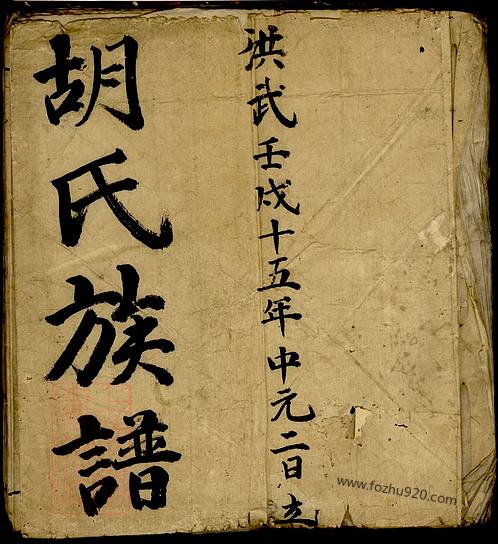 洪武壬戌十五年中元二日立
胡氏族譜
www.fozhu920.com